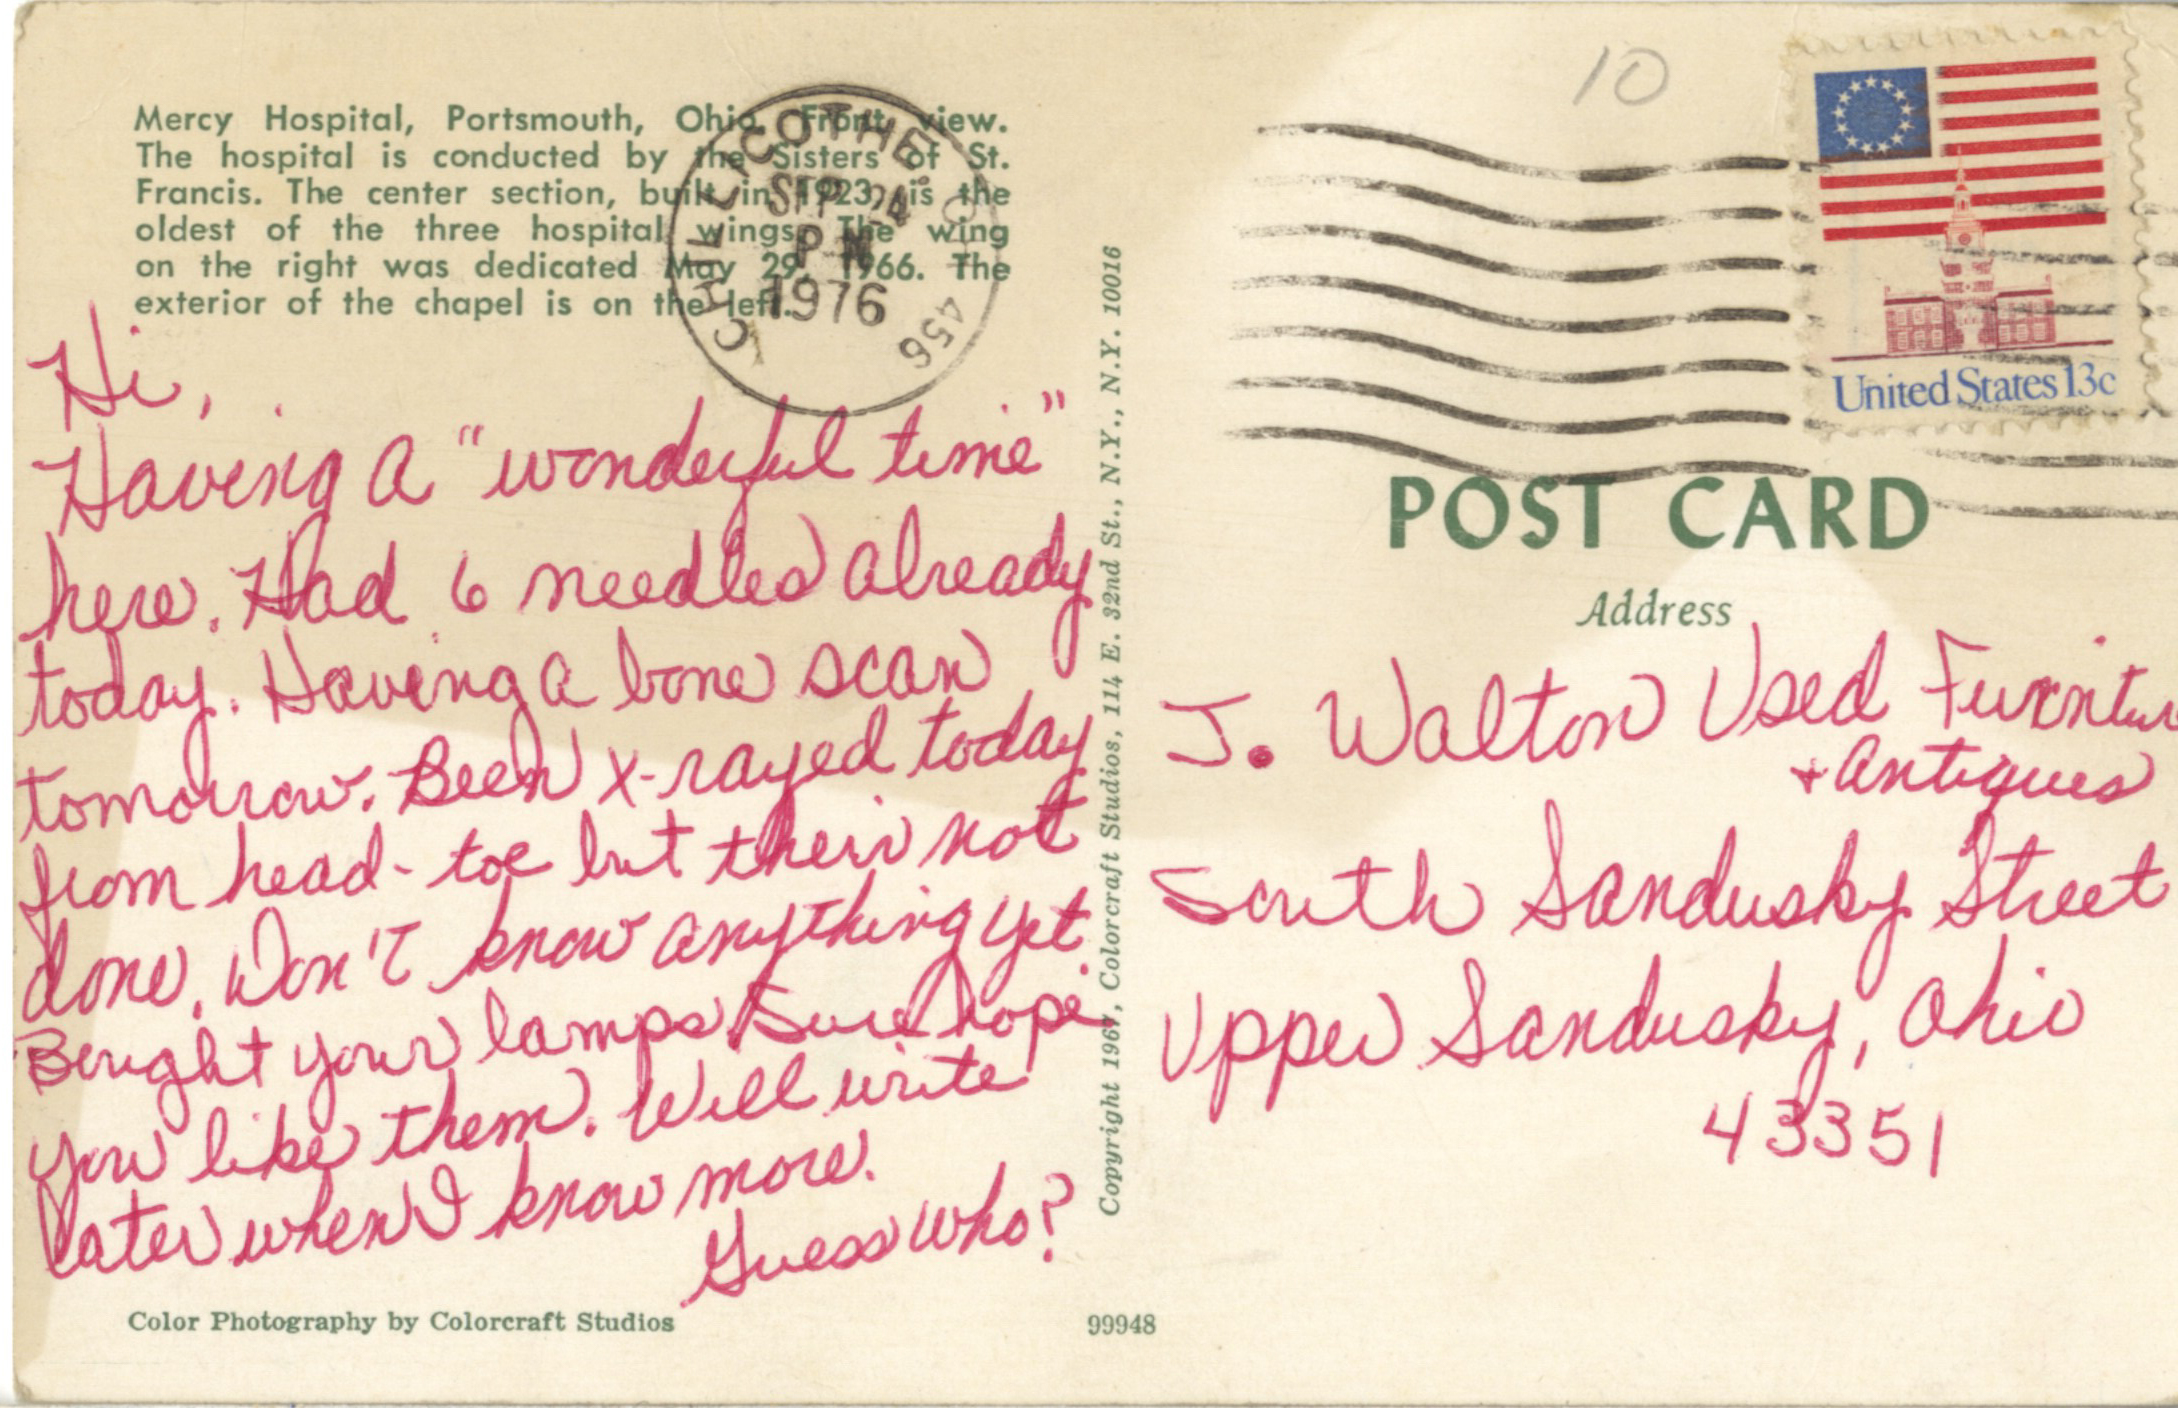 Mercy Hospital, Portsmouth, Ohio. Front view.
The hospital is conducted by the Sisters of St.
Francis. The center section, built in 1923, is the
oldest of the three hospital wings. The wing
on the right was dedicated May 29, 1966. The
exterior of the chapel is on the left.
CHILLICOTHE, O
SEP 24
PM
1976
456
Hi,
Having a "wonderful time"
here. Had 6 needles already
today. Having a bone scan
tomorrow. Been x-rayed today
from head-toe but their not
done. Don't know anything yet.
Bought your lamps Sure hope
you like them. Will write
later when I know more.
Guess who?
Color Photography by Colorcraft Studios
99948
Copyright 1967, Colorcraft Studios, 114 E. 32nd St., N.Y., N.Y. 10016
10
United States 13c
POST CARD
Address
J. Walton Used Furnitur
+ Antiques
South Sandusky Street
Upper Sandusky, Ohio
43351